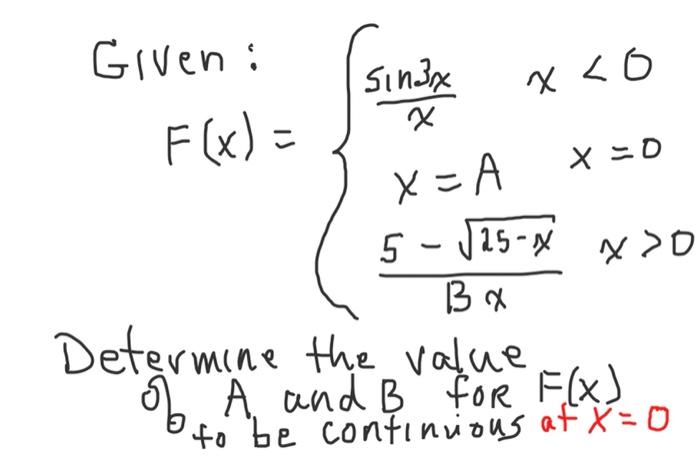 Given:
F(x) = { sin3x / x    x < 0
x = A    x = 0
5 - √25-x / Bx    x > 0
Determine the value
of A and B for F(x)
to be continuous at x = 0